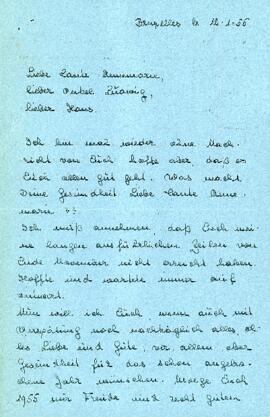 Bruxelles le 12-1-55
Liebe Tante Annemarie,
lieber Onkel Ludwig,
lieber Hans.
Ich bin zwar wieder ohne Nach-
richt von Euch hoffe aber, daß es
Euch allen gut geht. Was macht
Deine Gesundheit Liebe Tante Anne-
marie ??
Ich muß annehmen, daß Euch mei-
ne langen ausführlichen Zeilen von
Ende November nicht erreicht haben.
Hoffte und wartete immer auf
Antwort.
Nun will ich Euch, wenn auch mit
Verspätung noch nachträglich alles
Liebe und Gute, vor allem aber
Gesundheit für das schon angebro-
chene Jahr wünschen. Moege Euch
1955 nur Freude und recht guten